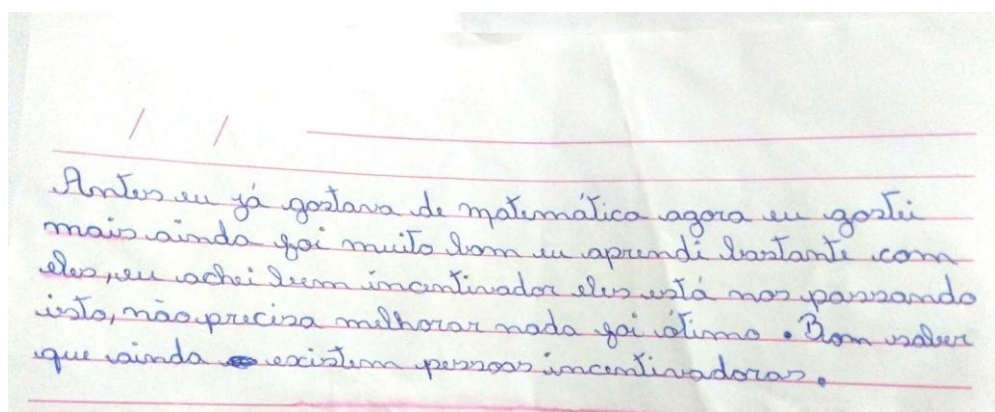 / /
Antes eu já gostava de matemática agora eu gostei
mais ainda foi muito bom eu aprendi bastante com
eles, eu achei bem incentivador eles está nos passando
isto, não precisa melhorar nada foi ótimo. Bom saber
que ainda existem pessoas incentivadoras.